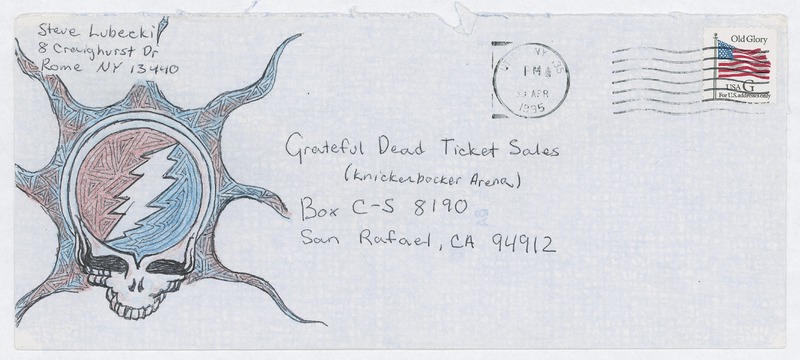 Steve Lubecki
8 Craighurst Dr
Rome NY 13440
NY
PM
APR
1995
Old Glory
USA G
For U.S. addresses only
Grateful Dead Ticket Sales
(Knickerbocker Arena)
Box C-S 8190
San Rafael, CA 94912